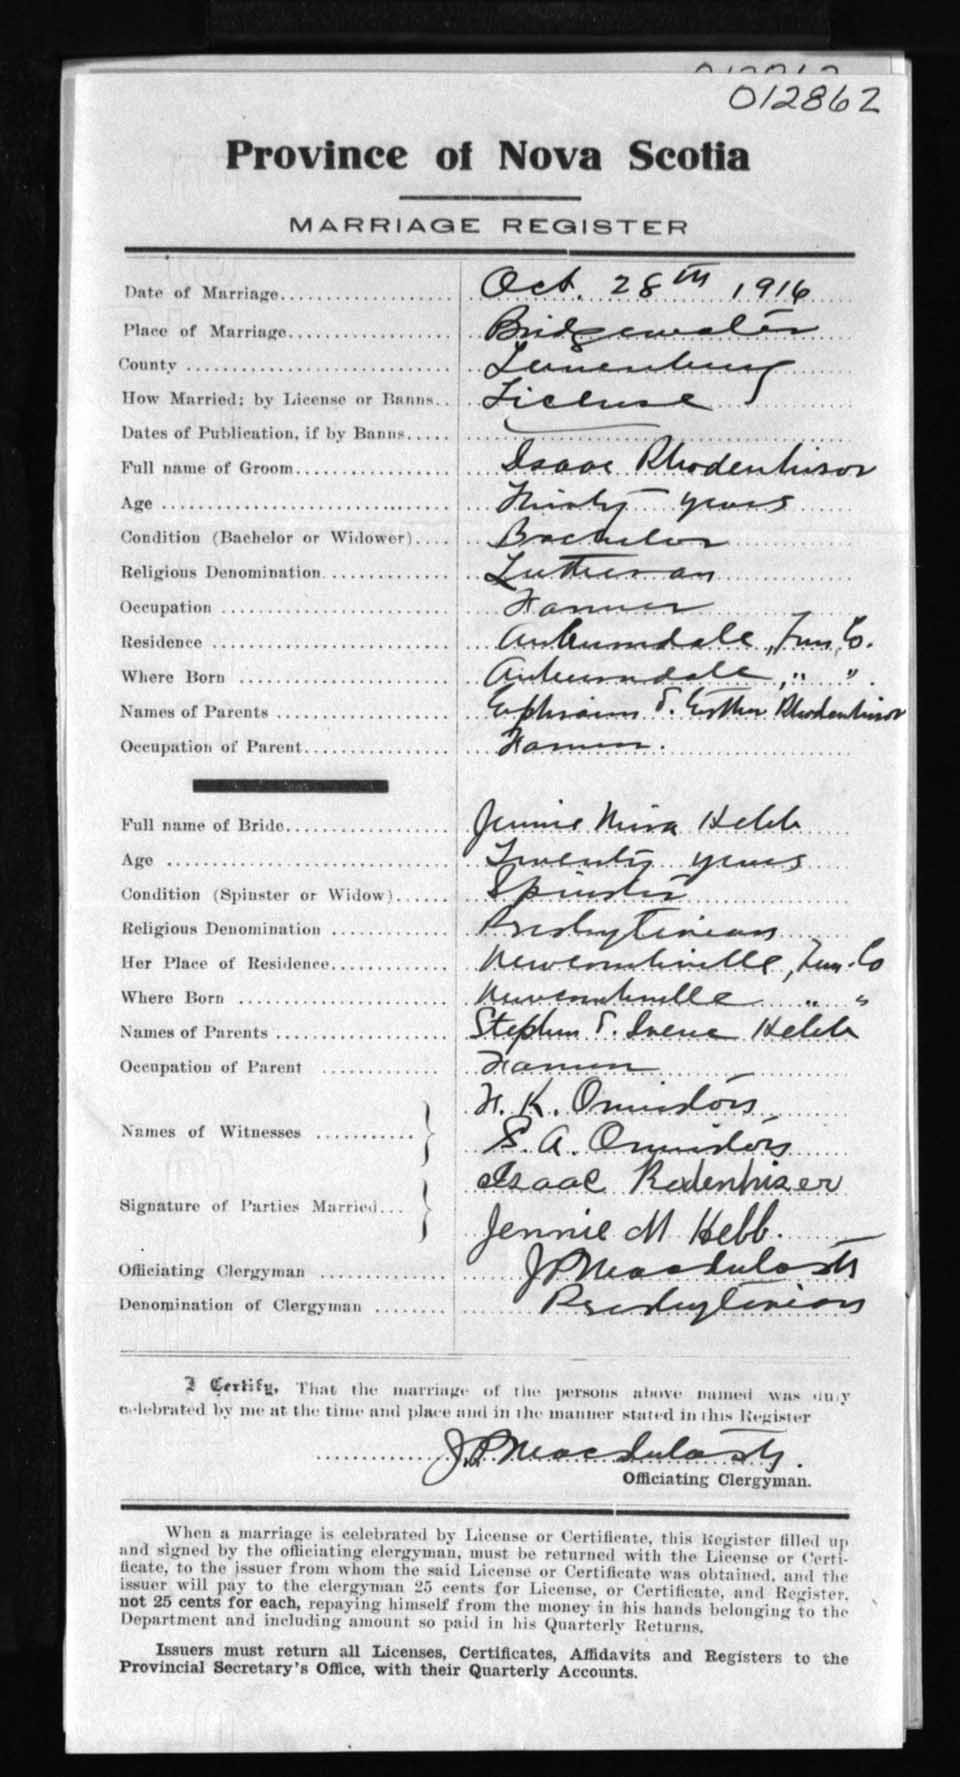 012862
Province of Nova Scotia
MARRIAGE REGISTER
Date of Marriage Oct. 28th 1916
Place of Marriage Bridgewater
County Lunenburg
How Married; by License or Banns License
Dates of Publication, if by Banns
Full name of Groom Isaac Rhodenhiser
Age Thirty years
Condition (Bachelor or Widower) Bachelor
Religious Denomination Lutheran
Occupation Farmer
Residence Auburndale, Lun. Co.
Where Born Auburndale, " "
Names of Parents Ephraim & Esther Rhodenhiser
Occupation of Parent Farmer.
Full name of Bride Jennie Mina Hebb
Age Twenty years
Condition (Spinster or Widow) Spinster
Religious Denomination Presbyterian
Her Place of Residence Newcombville, Lun. Co
Where Born Newcombville " "
Names of Parents Stephen & Irene Hebb
Occupation of Parent Farmer
Names of Witnesses
H. K. Ormiston
S. A. Ormiston
Signature of Parties Married
Isaac Rodenhizer
Jennie M Hebb.
Officiating Clergyman J P
Denomination of Clergyman Presbyterian
I Certify, That the marriage of the persons above named was duly
celebrated by me at the time and place and in the manner stated in this Register
J. P.
Officiating Clergyman.
When a marriage is celebrated by License or Certificate, this Register filled up
and signed by the officiating clergyman, must be returned with the License or Certi-
ficate, to the issuer from whom the said License or Certificate was obtained, and the
issuer will pay to the clergyman 25 cents for License, or Certificate, and Register,
not 25 cents for each, repaying himself from the money in his hands belonging to the
Department and including amount so paid in his Quarterly Returns.
Issuers must return all Licenses, Certificates, Affidavits and Registers to the
Provincial Secretary's Office, with their Quarterly Accounts.